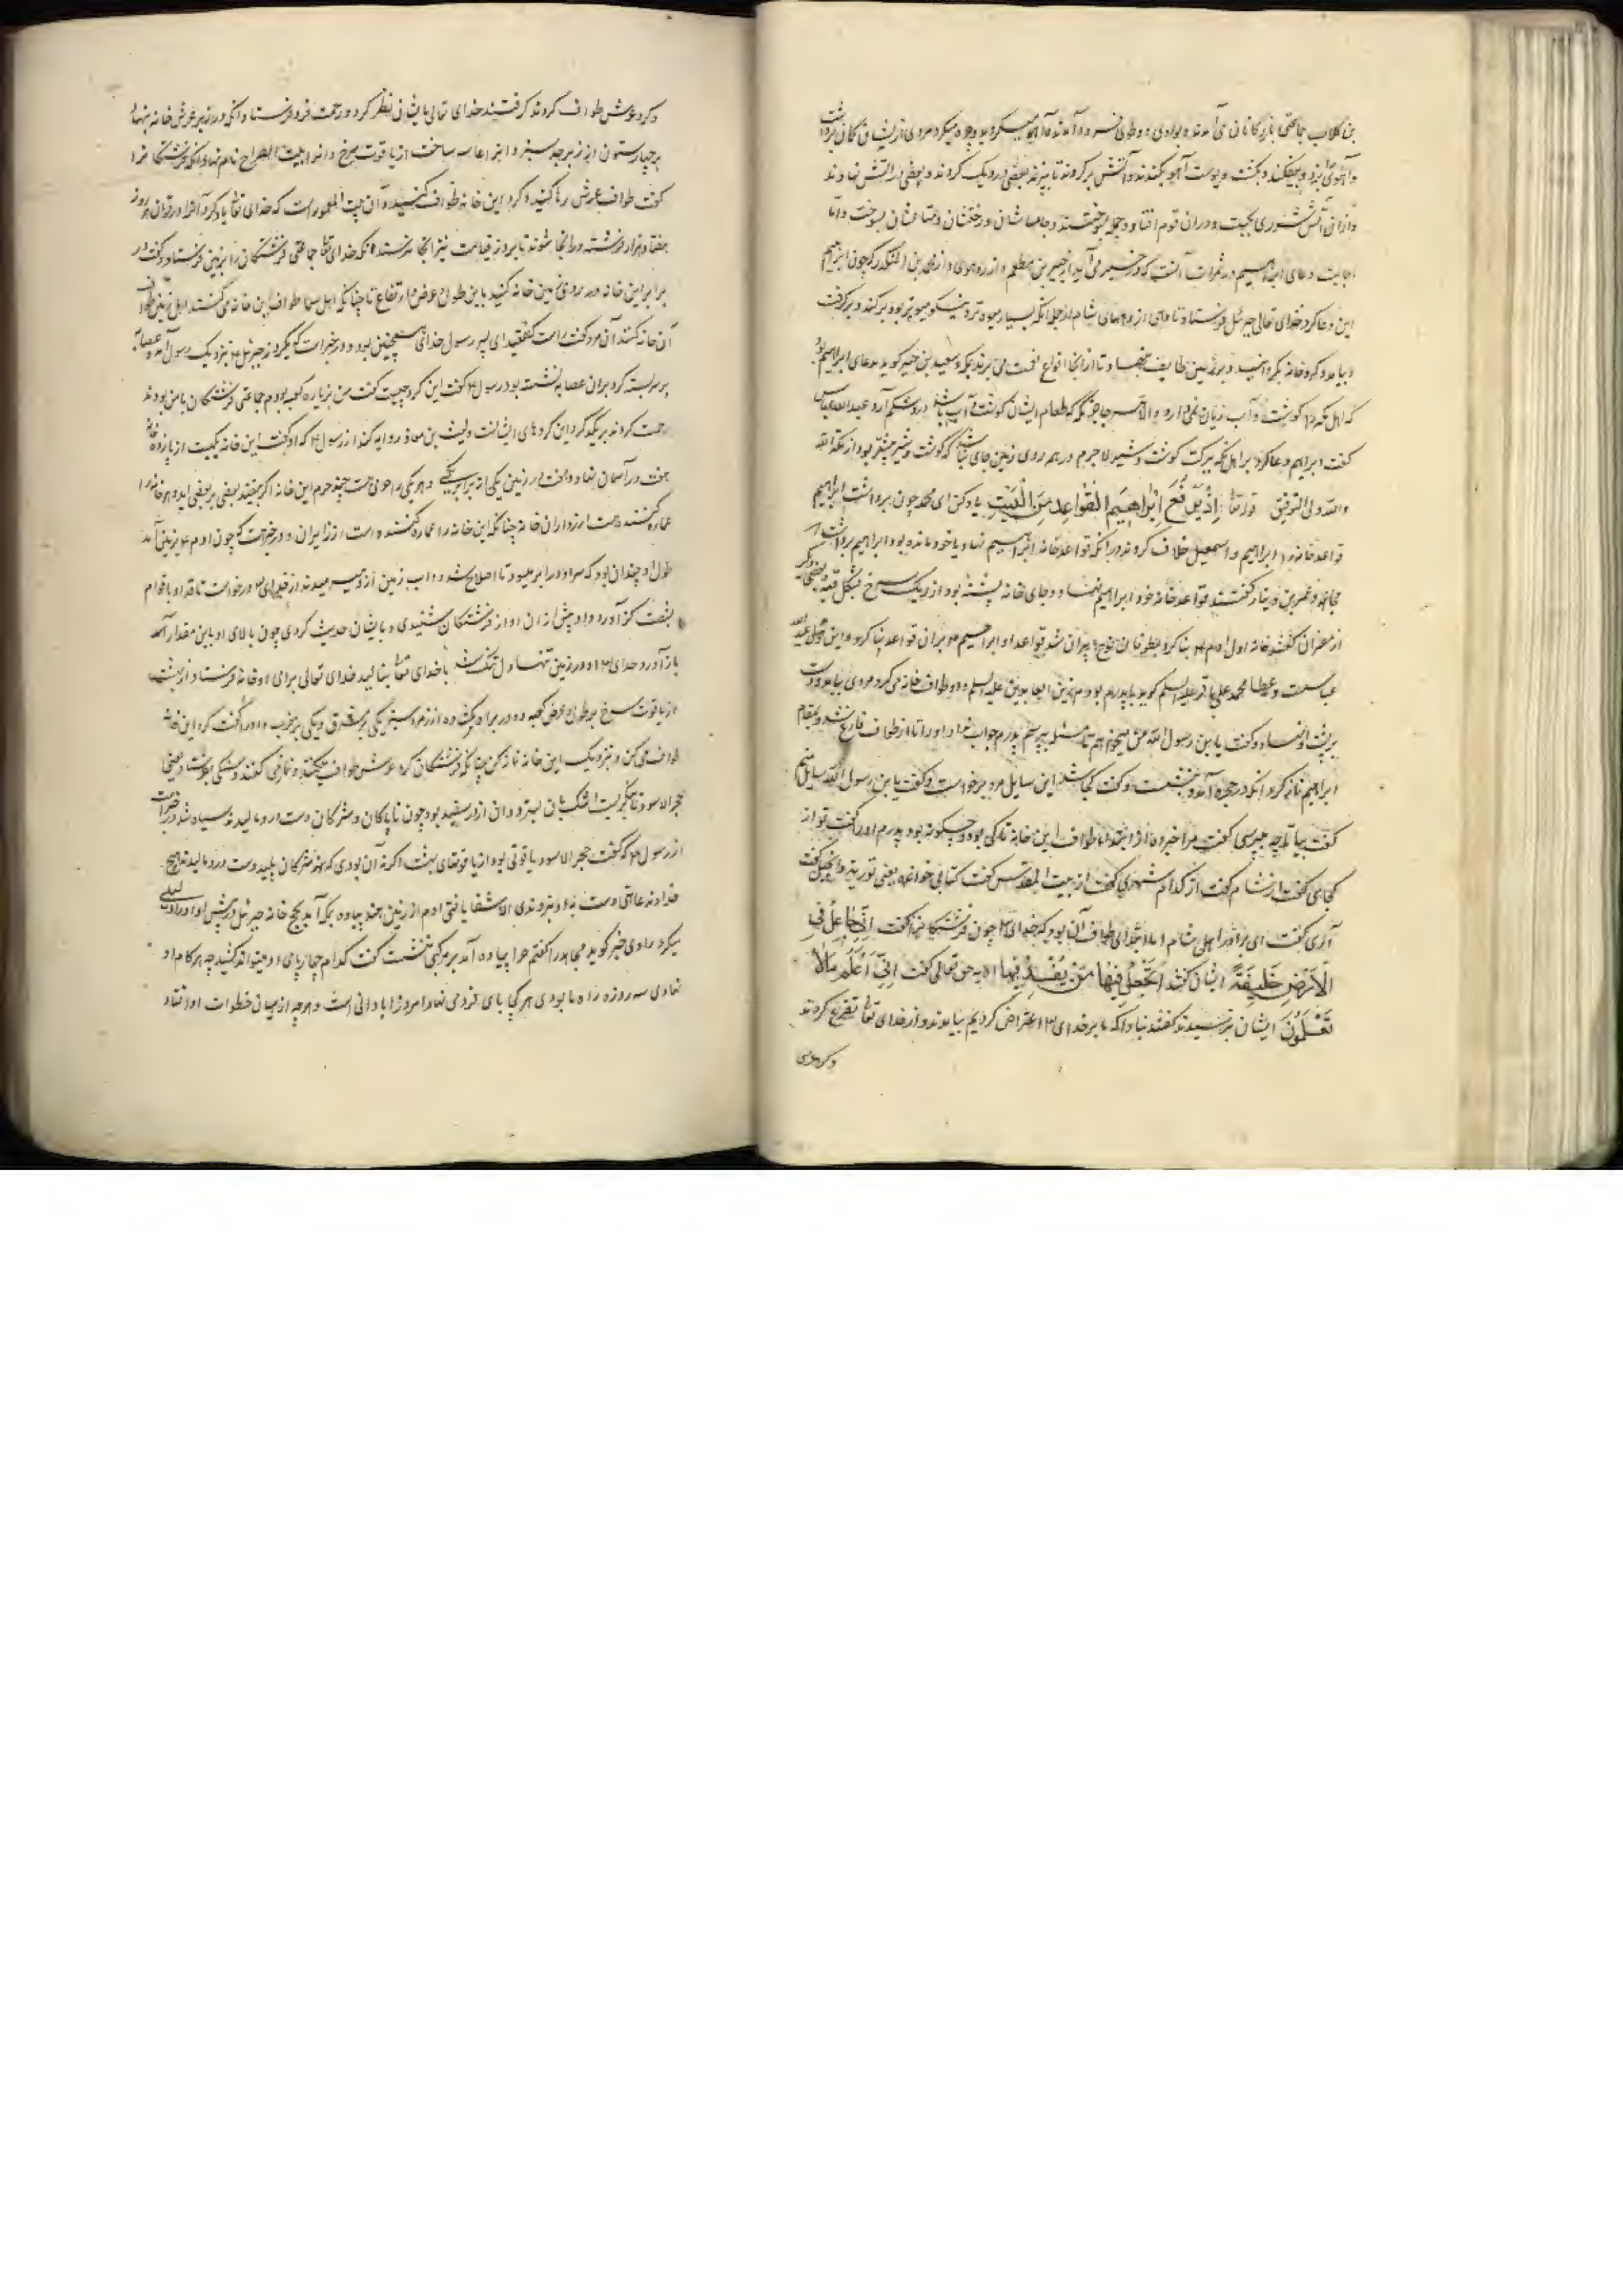 بن کلاب جماعتی بازرگانان می آمدند بوادی ذو طوی فرود آمدند آهو میگردید و چره میکرد مردی از ایشان کمان برداشت
و آهوئی بزد و بیفکند و بکشت و پوست آهو بکندند و آتش بر کردند تا بپزند بعضی در دیک کردند و بعضی در آتش نهادند
و ازان آتش شرری بجست و دران قوم افتاد و جمله بسوختند و جامهاشان و رختشان و متاعشان بسوخت و اما
اجابت دعای ابراهیم در ثمرات آنست که در خبر می آید از جبیر بن مطعم و از زهری و از محمد بن المنکدر که چون ابراهیم
این دعا کرد خدای تعالی جبرئیل فرستاد تا دهی از دههای شام از جمله آنکه بسیار میوه تر و نیکو میوه تر بود بر کند و بر گرفت
و بیاورد و گرد خانه بگردانید و بر زمین طایف بنهاد تا از آنجا انواع نعمت می برند بمکه و سعید بن جبیر گوید بدعای ابراهیم بود
که اهل مکه را گوشت و آب زیان نمی دارد و الا هر جا جز مکه که طعام ایشان گوشت و آب باشد درد شکم آرد عبد الله عباس
گفت ابراهیم دعا کرد بر اهل مکه ببرکت گوشت و شیر لاجرم در همه روی زمین جای نباشد که گوشت و شیر بیشتر بود از مکه
والله ولی التوفیق قوله تعا اِذْ یَرْفَعُ اِبْرَاهِیمُ الْقَوَاعِدَ مِنَ الْبَیْتِ یاد کن ای محمد چون برداشت ابراهیم
قواعد خانه را ابراهیم و اسمعیل خلاف کردند در آنکه قواعد خانه ابراهیم نهاد یا خود مانده بود ابراهیم برداشت
مجاهد و عمرو بن دینار گفتند قواعد خانه خود ابراهیم نهاد و جای خانه پشته بود از ریک سرخ بشکل قبه و بعضی دگر
از مفسران گفتند خانه اول آدم بنا کرد بطوفان نوح ویران شد قواعد او ابراهیم بر آن قواعد بنا کرد و این قول عبد الله
عباسست و عطا محمد علی باقر علیه السلم گوید با پدرم بودم زین العابدین علیه السلم و او طواف خانه می کرد مردی بیامد و دست
بر پشت او نهاد و گفت یا بن رسول الله من میخواهم تا مسئله بپرسم پدرم جواب نداد او را تا از طواف فارغ شد و بمقام
ابراهیم نماز کرد آنکه در حجره آمد و بنشست و گفت کجا شد این سایل مرد برخواست و گفت یا بن رسول الله سایل منم
گفت بیا تا چه میپرسی گفت مرا خبر ده از ابتدا طواف این خانه تا کی بود و چگونه بود پدرم او را گفت تو از
کجای گفت از شام گفت از کدام شهری گفت از بیت المقدس گفت کتابی خوانده یعنی توریة و انجیل گفت
آری گفت ای برادر اهل شام اما ابتدای طواف آن بود که خدای چون فرشتگانرا گفت اِنِّی جَاعِلٌ فِی
الْاَرْضِ خَلِیفَةً ایشان گفتند اَتَجْعَلُ فِیهَا مَنْ یُفْسِدُ فِیهَا الایه حق تعالی گفت اِنِّی اَعْلَمُ مَا لَا
تَعْلَمُونَ ایشان بترسیدند گفتند نباد آنکه ما بر خدای اعتراض کردیم بیامدند و از خدای تعا تضرع کردند
و گرد عرش
و گرد عرش طواف کردند گرفتند خدای تعالی بایشان نظر کرد و رحمت فرو فرستاد و آنکه در زیر عرش خانه بنهاد
بر چهار ستون از زبرجد سبز و آنرا ساخت از یاقوت سرخ و آنرا بیت الضراح نام نهاد و آنکه فرشتگانرا
گفت طواف عرش رها کنید و گرد این خانه طواف کنید و آن بیت المعمور است که خدای تعا یاد کرد آنرا در قرآن هر روز
هفتاد هزار فرشته در آنجا شوند تا بروز قیامت نیز آنجا نرسند آنکه خدای تعا جماعتی فرشتگان را بزمین فرستاد و گفت در
برابر این خانه در روی زمین خانه کنید باین طول و عرض و ارتفاع تا چنانکه اهل سما طواف این خانه می کنند اهل زمین طواف
آن خانه کنند آن مرد گفت راست گفتی ای پسر رسول خدای همچنین بود و در خبر است که یکروز جبرئیل بنزدیک رسول آمد و عصابه
بر سر بسته گرد بران عصابه نشسته بود رسول گفت این گرد چیست گفت من بزیاره کعبه بودم جماعتی فرشتگان با من بودند
زحمت کردند بر یکدیگر این گردهای ایشانست و لیث بن معاذ روایه کند از رسول که او گفت این خانه یکیست از پانزده خانه
هفت در آسمان نهاد و هفت در زمین یکی از برابر یکی و هر یکی را حرمی هست چند حرم این خانه اگر بیفتد بعضی بر بعضی آید و هر خانه را
عماره کننده هست از زواران خانه چنانکه این خانه را عماره کننده است از زایران و در خبر است که چون آدم بزمین آمد
طول او چندان بود که سر او در ابر میسود تا اصلع شد و دواب زمین از او میرمیدند از خدای درخواست تا قد او با قوام
بشصت گز آورد و او پیش ازان آواز فرشتگان شنیدی و با ایشان حدیث کردی چون بالای او باین مقدار آمد
باز آورد خدای او در زمین تنها دل تنگ شد با خدای تعا بنالید خدای تعالی برای او خانه فرستاد از بهشت
از یاقوت سرخ بر طول و عرض کعبه دو در برو گشاده از زمرد سبز یکی بر مشرق و یکی بر مغرب و او را گفت گرد این خانه
طواف می کن و بنزدیک این خانه نماز کن چنانکه فرشتگان گرد عرش طواف میکنند و نماز می کنند و سنگی بفرستاد یعنی
حجر الاسود تا میگریست اشک بان بسترد و آن از در سفید بود چون ناپاکان و مشرکان دست در و مالیدند سیاه شد در خبر است
از رسول که گفت حجر الاسود یاقوتی بود از یاقوتهای بهشت اگر نه آن بودی که مشرکان پلید دست در و مالیدند هیچ
خداوند عاهتی دست بدو نبردندی الا شفا یافتی آدم از زمین هند پیاده بمکه آمد بحج خانه جبرئیل در پیش او او را دلیلی
میکرد راوی خبر گوید مجاهد را گفتم چرا پیاده آمد بر مرکبی ننشست گفت کدام چهارپای او را میتوانست کشید چه هر کام او
نهادی سه روزه راه ما بودی هر کجا پای فرو می نهاد امروز آبادانی است و هر چه از میان خطوات او افتاد